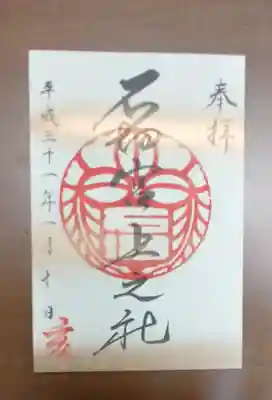 奉拝
石刕宮上之社
平成三十一年一月十日
亥